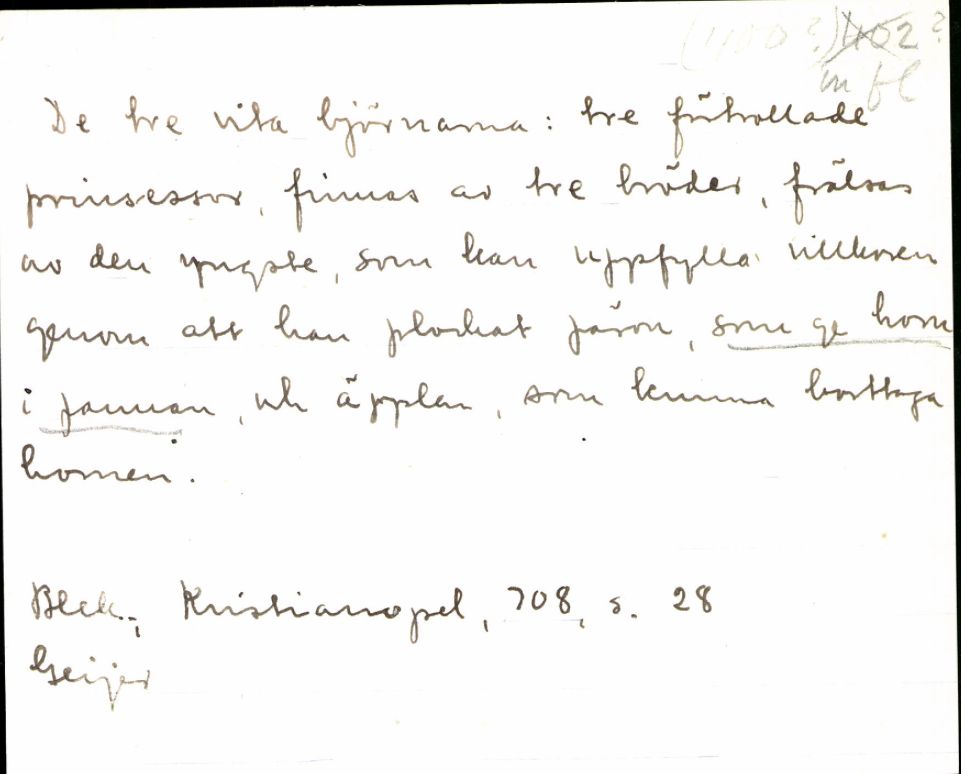 (400?) 402?
m fl
De tre vita björnarna: tre förtrollade
prinsessor, finnas av tre bröder, frälsas
av den yngste, som kan uppfylla villkoren
genom att han plockat päron, som ge horn
i pannan, och äpplen, som kunna borttaga
hornen.
Blek., Kristianopel, 708, s. 28
Geijer